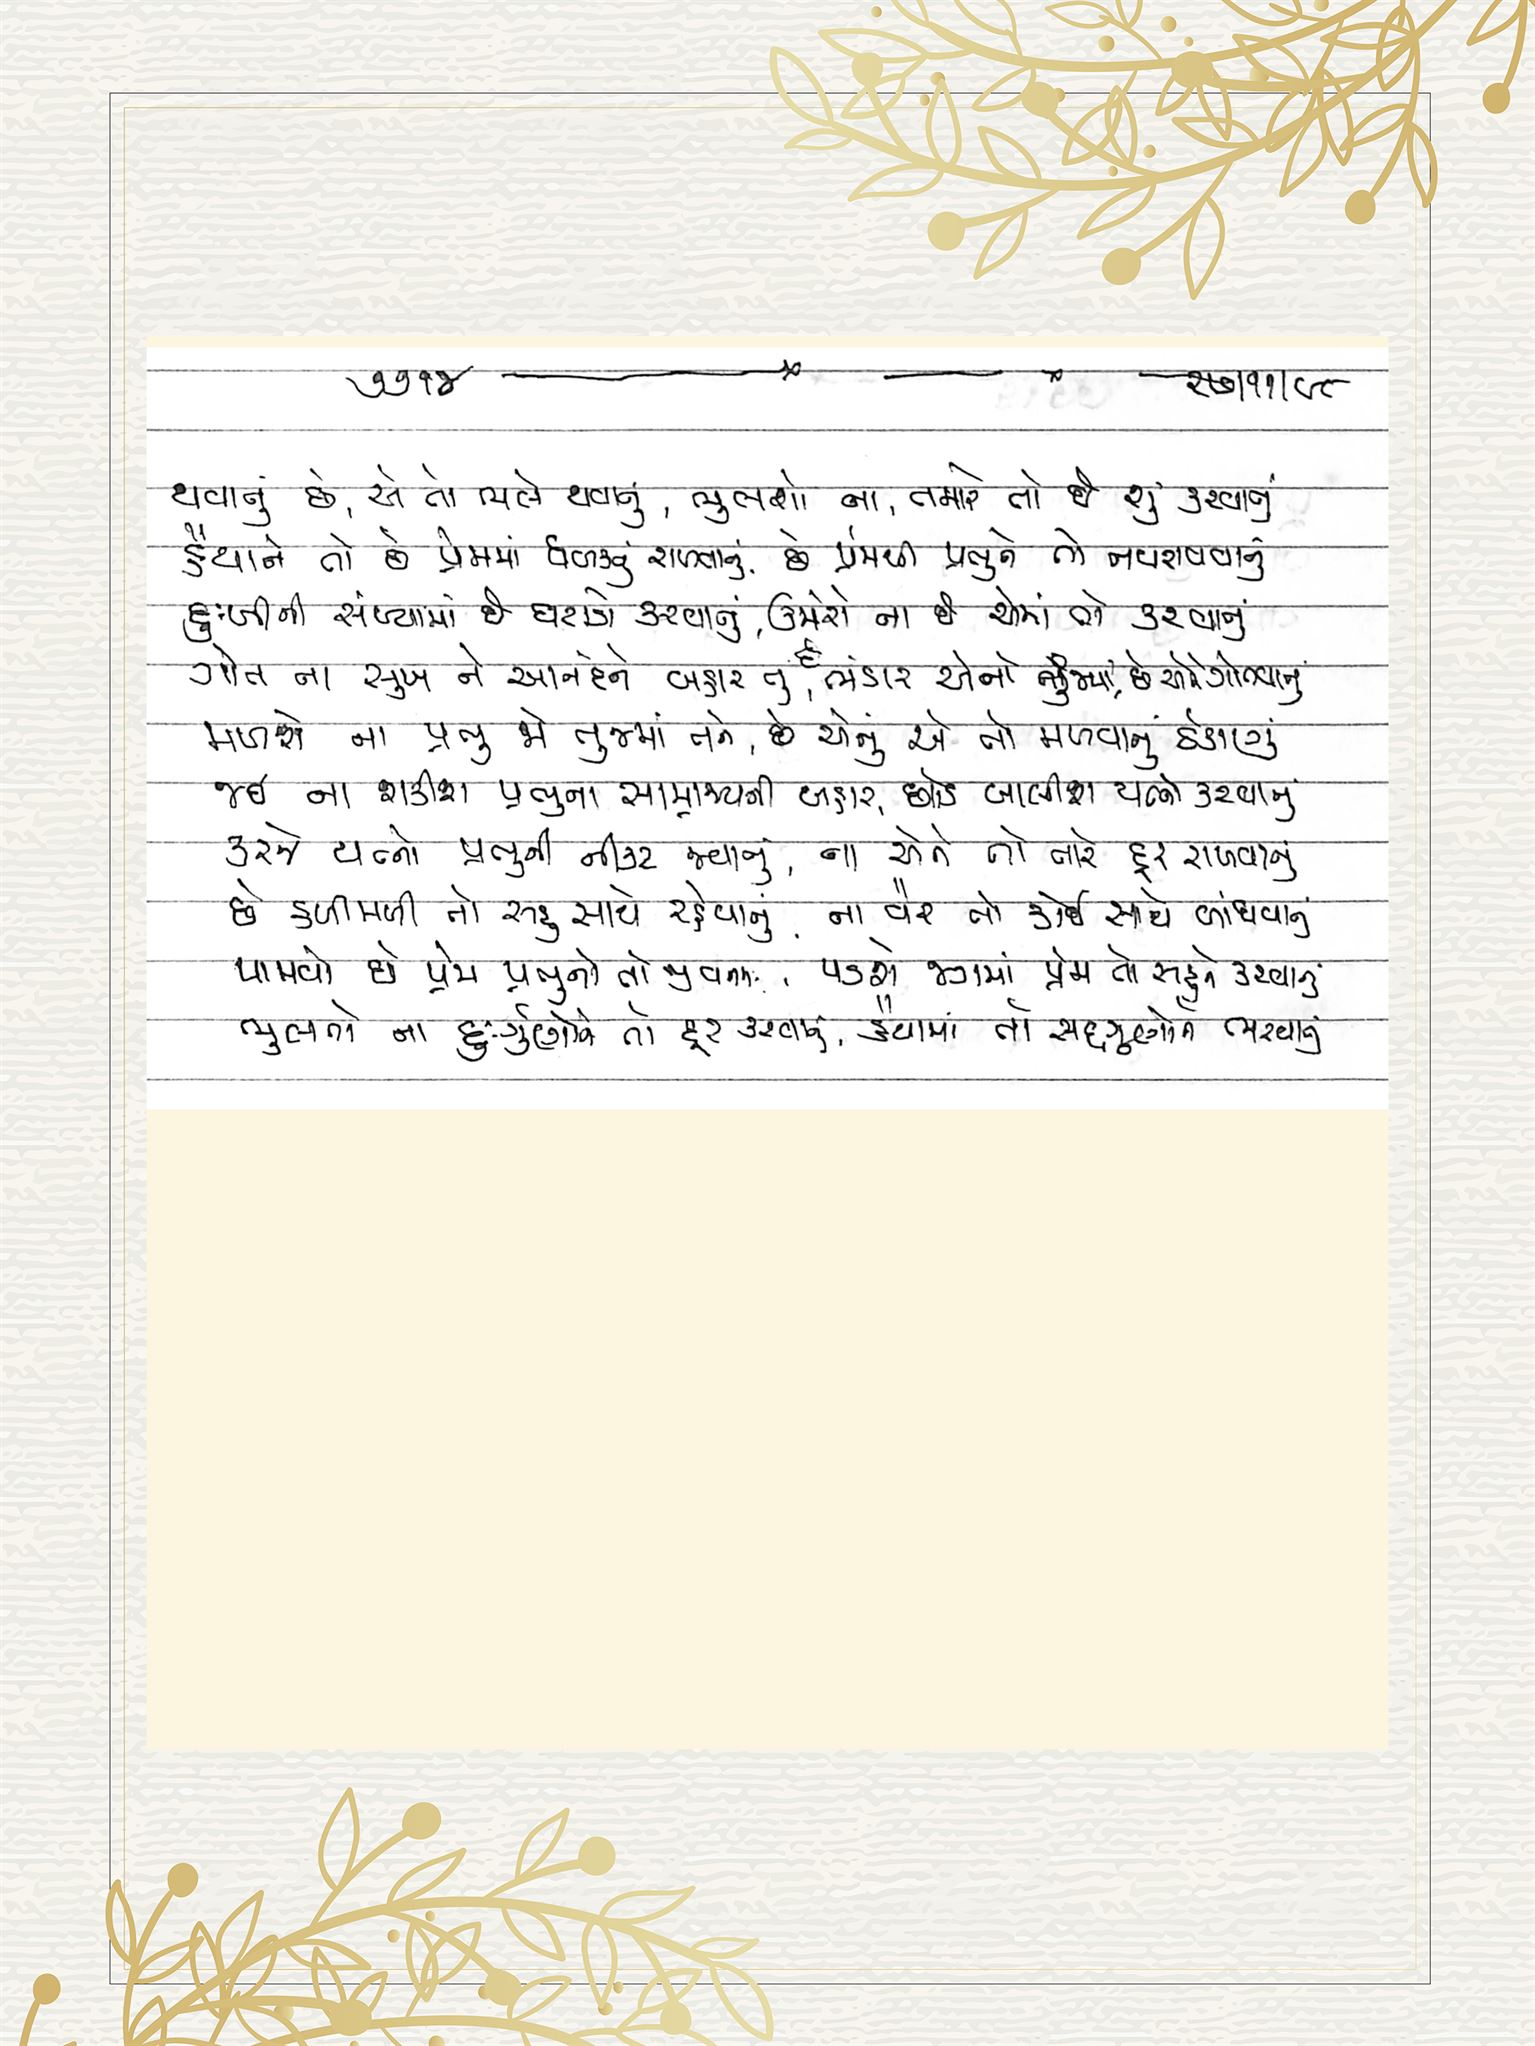 ૭૭૧૪ ૨૭/૧૧/૯૮
થવાનું છે, એ તો ભલે થવાનું, ભુલશો ના, તમારે તો છે શું કરવાનું
હૈયાને તો છે પ્રેમમાં ધબકતું રાખવાનું. છે પ્રેમથી પ્રભુને તો નવરાવવાનું
દુઃખીની સંખ્યામાં છે ઘટાડો કરવાનું, ઉમેરો ના છે એમાં તો કરવાનું
ગોત ના સુખ ને આનંદને બહાર તું, છે ભંડાર એનો જ્યાં, છે એને ગોતવાનું
મળશે ના પ્રભુ જો તુજમાં તને, છે એનું એ તો મળવાનું ઠેકાણું
જઈ ના શકીશ પ્રભુના સામ્રાજ્યની બહાર, છોડ બાલીશ યત્નો કરવાનું
કરજે યત્નો પ્રભુની નીકટ જવાનું, ના એને તો તારે દૂર રાખવાનું
છે હળીમળી તો સહુ સાથે રહેવાનું. ના વૈર તો કોઈ સાથે બાંધવાનું
પામવો છે પ્રેમ પ્રભુનો તો જીવનમાં. પડશે જગમાં પ્રેમ તો સહુને કરવાનું
ભુલતો ના દુઃર્ગુણોને તો દૂર કરવાનું. હૈયામાં તો સદ્દગુણોને ભરવાનું